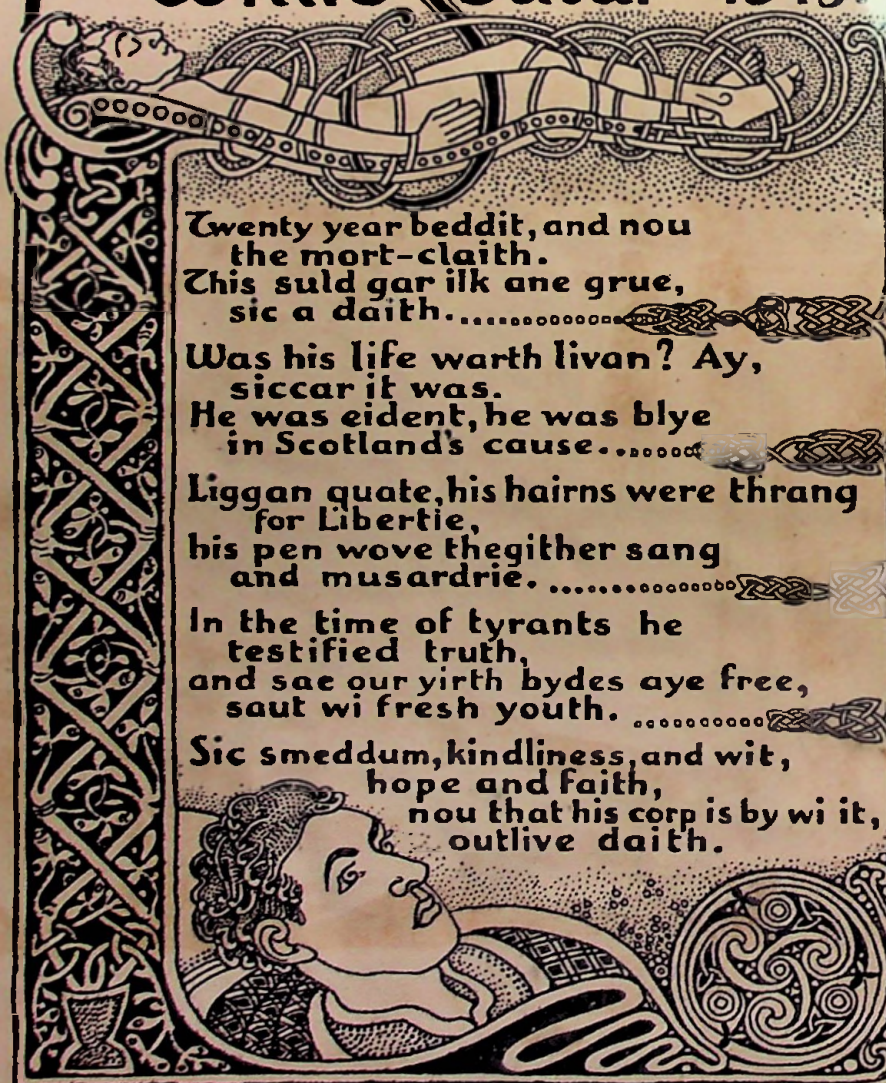 Twenty year beddit, and nou
the mort-claith.
This suld gar ilk ane grue,
sic a daith.
Was his life warth livan? Ay,
siccar it was.
He was eident, he was blye
in Scotland's cause.
Liggan quate, his hairns were thrang
for Libertie,
his pen wove thegither sang
and musardrie.
In the time of tyrants he
testified truth,
and sae our yirth bydes aye free,
saut wi fresh youth.
Sic smeddum, kindliness, and wit,
hope and faith,
nou that his corp is by wi it,
outlive daith.